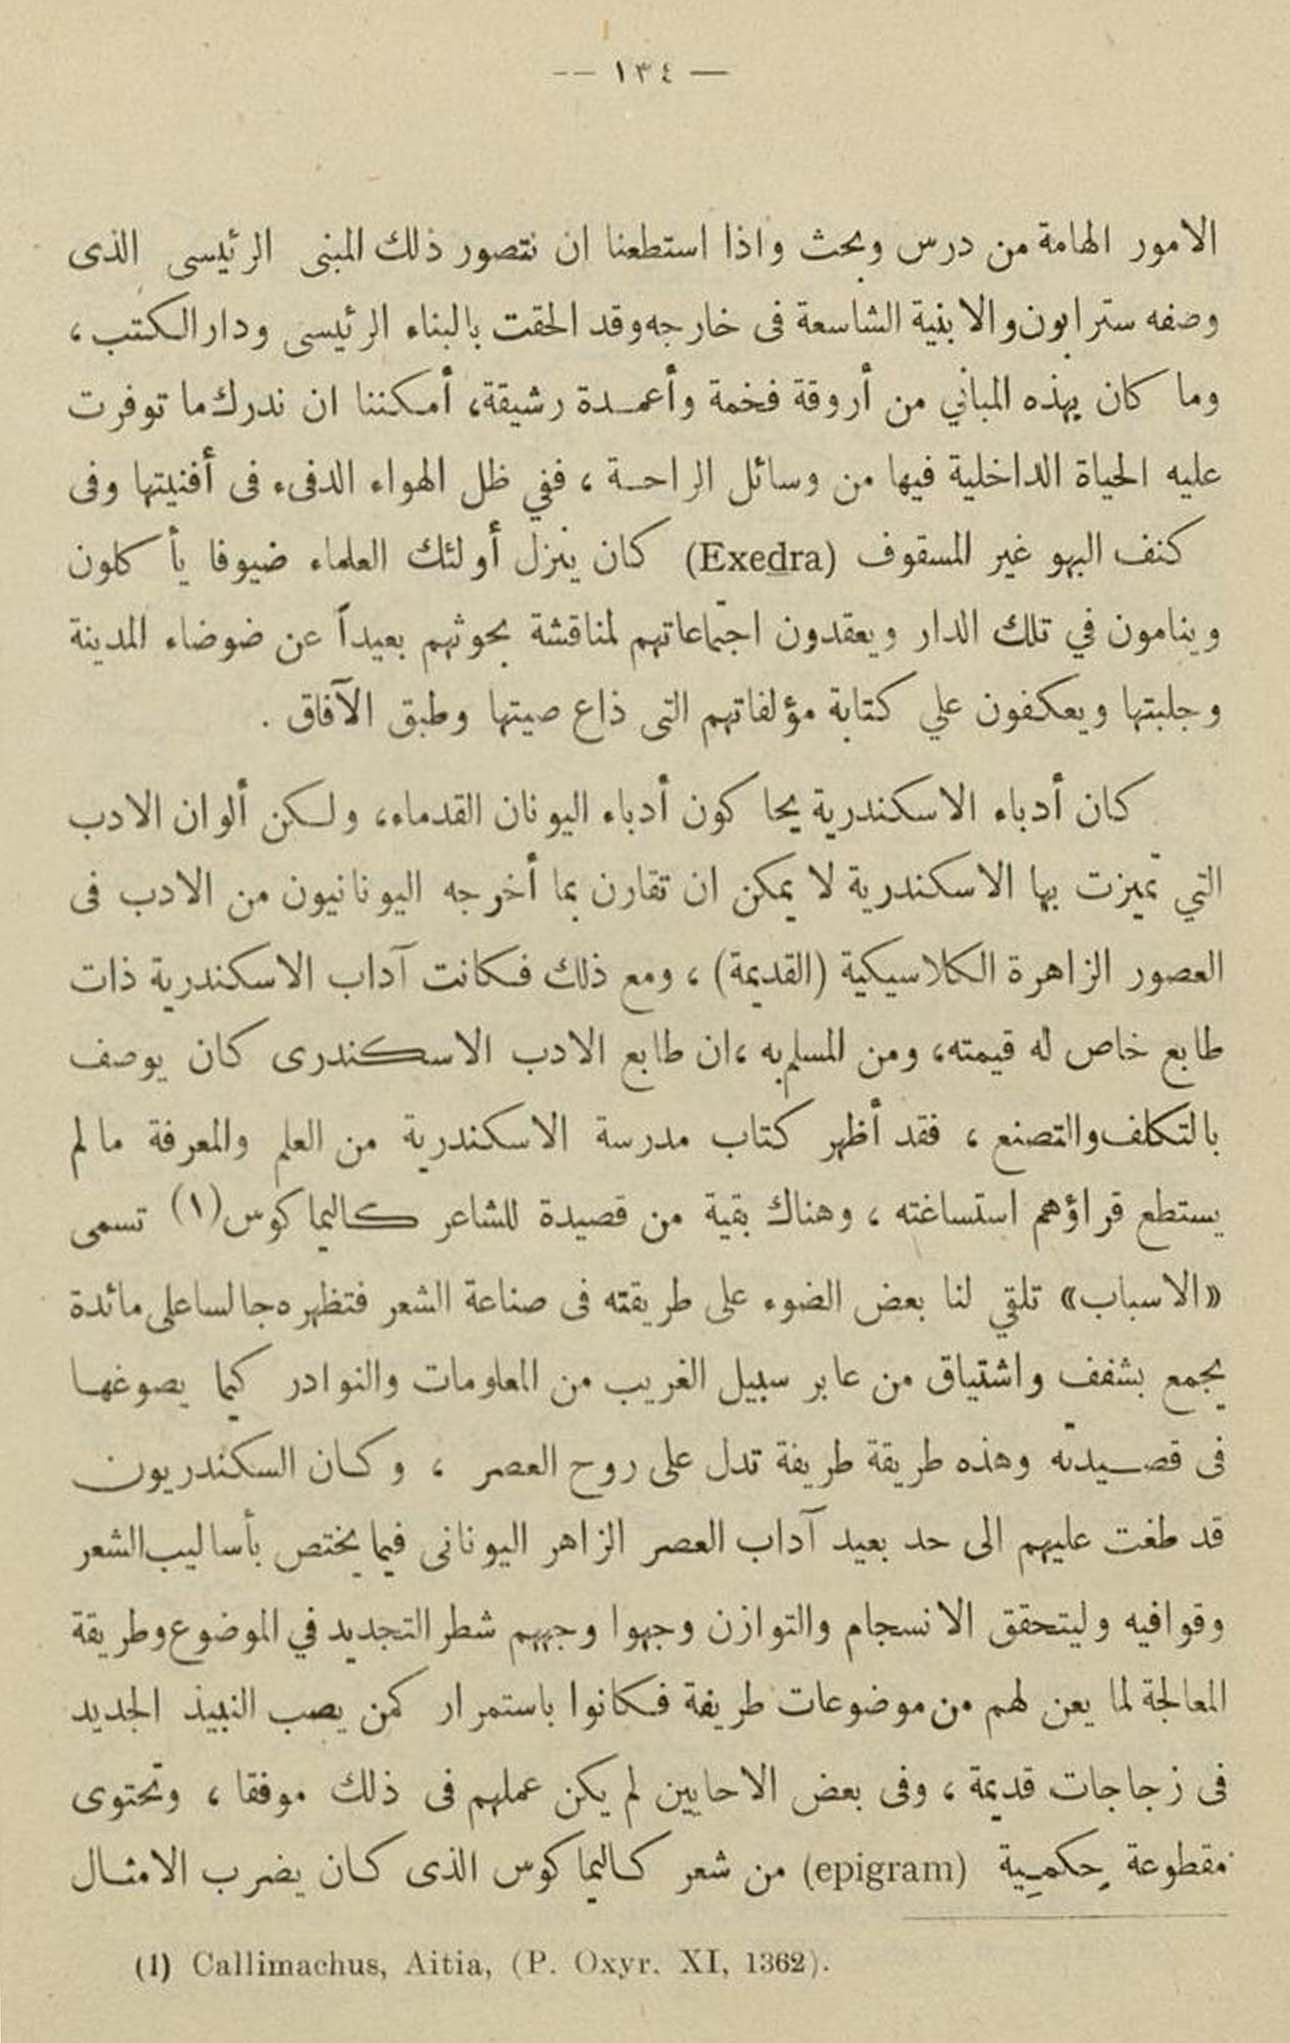 — ١٣٤ —
الامور الهامة من درس وبحث واذا استطعنا ان نتصور ذلك المبنى الرئيسى الذى
وصفه سترابون والابنية الشاسعة فى خارجه وقد الحقت بالبناء الرئيسى ودار الكتب ،
وما كان بهذه المباني من أروقة فخمة وأعمدة رشيقة، أمكننا ان ندرك ما توفرت
عليه الحياة الداخلية فيها من وسائل الراحة ، ففي ظل الهواء الدفىء فى أفنيتها وفى
كنف البهو غير المسقوف (Exedra) كان ينزل أولئك العلماء ضيوفا يأكلون
وينامون في تلك الدار ويعقدون اجتماعاتهم لمناقشة بحوثهم بعيداً عن ضوضاء المدينة
وجلبتها ويعكفون علي كتابة مؤلفاتهم التى ذاع صيتها وطبق الآفاق .
كان أدباء الاسكندرية يحاكون أدباء اليونان القدماء، ولكن ألوان الادب
التي تميزت بها الاسكندرية لا يمكن ان تقارن بما أخرجه اليونانيون من الادب فى
العصور الزاهرة الكلاسيكية (القديمة) ، ومع ذلك فكانت آداب الاسكندرية ذات
طابع خاص له قيمته، ومن المسلم به ،ان طابع الادب الاسكندرى كان يوصف
بالتكلف والتصنع ، فقد أظهر كتاب مدرسة الاسكندرية من العلم والمعرفة مالم
يستطع قراؤهم استساغته ، وهناك بقية من قصيدة للشاعر كاليماكوس(١) تسمى
«الاسباب» تلقي لنا بعض الضوء على طريقته فى صناعة الشعر فتظهره جالسا على مائدة
يجمع بشغف واشتياق من عابر سبيل الغريب من المعلومات والنوادر كيما يصوغها
فى قصيدته وهذه طريقة طريفة تدل على روح العصر ، وكان السكندريون
قد طغت عليهم الى حد بعيد آداب العصر الزاهر اليونانى فيما يختص بأساليب الشعر
وقوافيه وليتحقق الانسجام والتوازن وجهوا وجههم شطر التجديد في الموضوع وطريقة
المعالجة لما يعن لهم من موضوعات طريفة فكانوا باستمرار كمن يصب النبيذ الجديد
فى زجاجات قديمة ، وفى بعض الاحايين لم يكن عملهم فى ذلك موفقا ، وتحتوى
مقطوعة حِكمِية (epigram) من شعر كاليماكوس الذى كان يضرب الامثال
(1) Callimachus, Aitia, (P. Oxyr. XI, 1362).